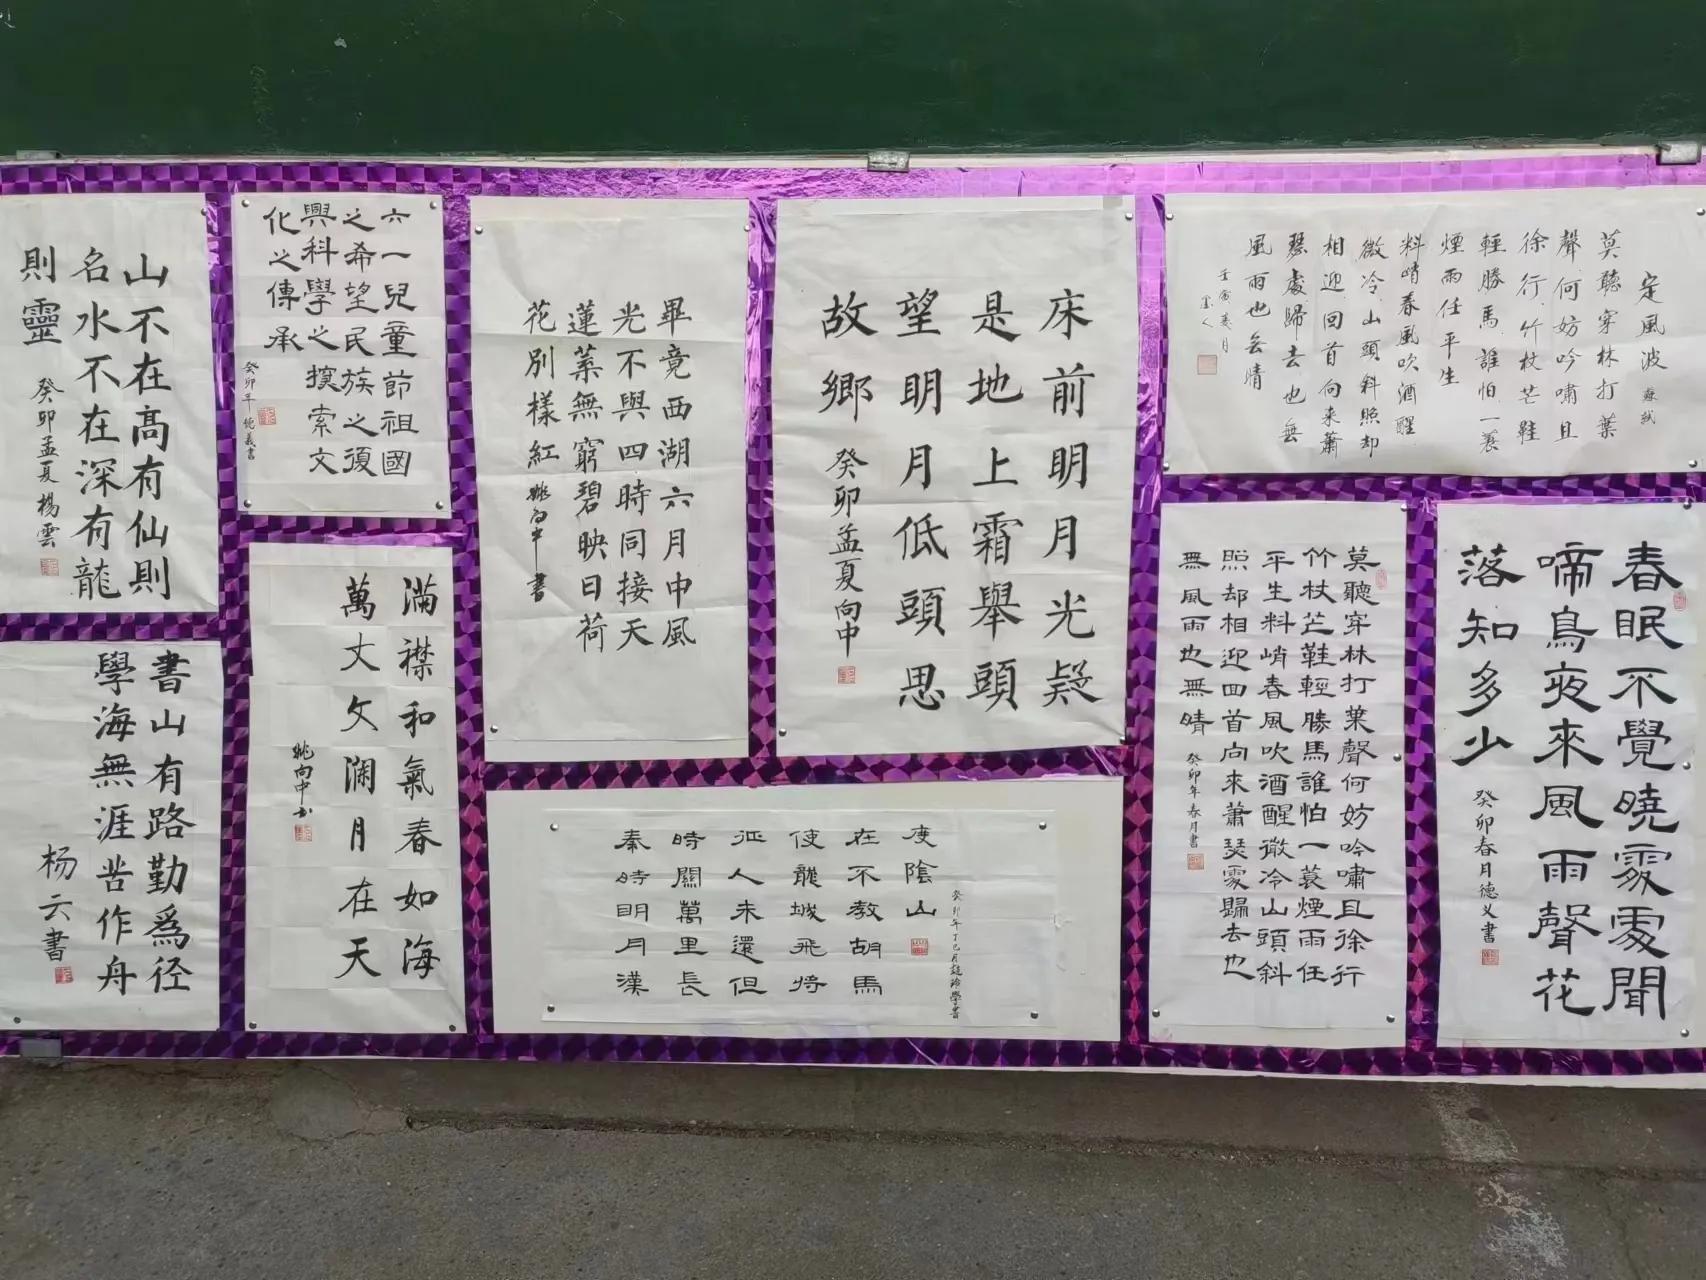 山不在高有仙則
名水不在深有龍
則靈
癸卯孟夏楊雲
書山有路勤爲径
學海無涯苦作舟
杨云書
六一兒童節祖國
之希望民族之復
興科學之探索文
化之傳承
癸卯年德義書
滿襟和氣春如海
萬丈文瀾月在天
姚向中书
畢竟西湖六月中風
光不與四時同接天
蓮葉無窮碧映日荷
花別樣紅
姚向中書
床前明月光疑
是地上霜舉頭
望明月低頭思
故鄉
癸卯孟夏向中
秦時明月漢
時關萬里長
征人未還但
使龍城飛将
在不教胡馬
度陰山
癸卯年丁巳月
學書
定風波 蘇軾
莫聽穿林打葉
聲何妨吟嘯且
徐行竹杖芒鞋
輕勝馬誰怕一蓑
煙雨任平生
料峭春風吹酒醒
微冷山頭斜照却
相迎回首向来蕭
瑟處歸去也無
風雨也無晴
壬寅
莫聽穿林打葉聲何妨吟嘯且徐行
竹杖芒鞋輕勝馬誰怕一蓑煙雨任
平生料峭春風吹酒醒微冷山頭斜
照却相迎回首向来蕭瑟處歸去也
無風雨也無晴
癸卯年春月書
春眠不覺曉處處聞
啼鳥夜來風雨聲花
落知多少
癸卯春月德义書